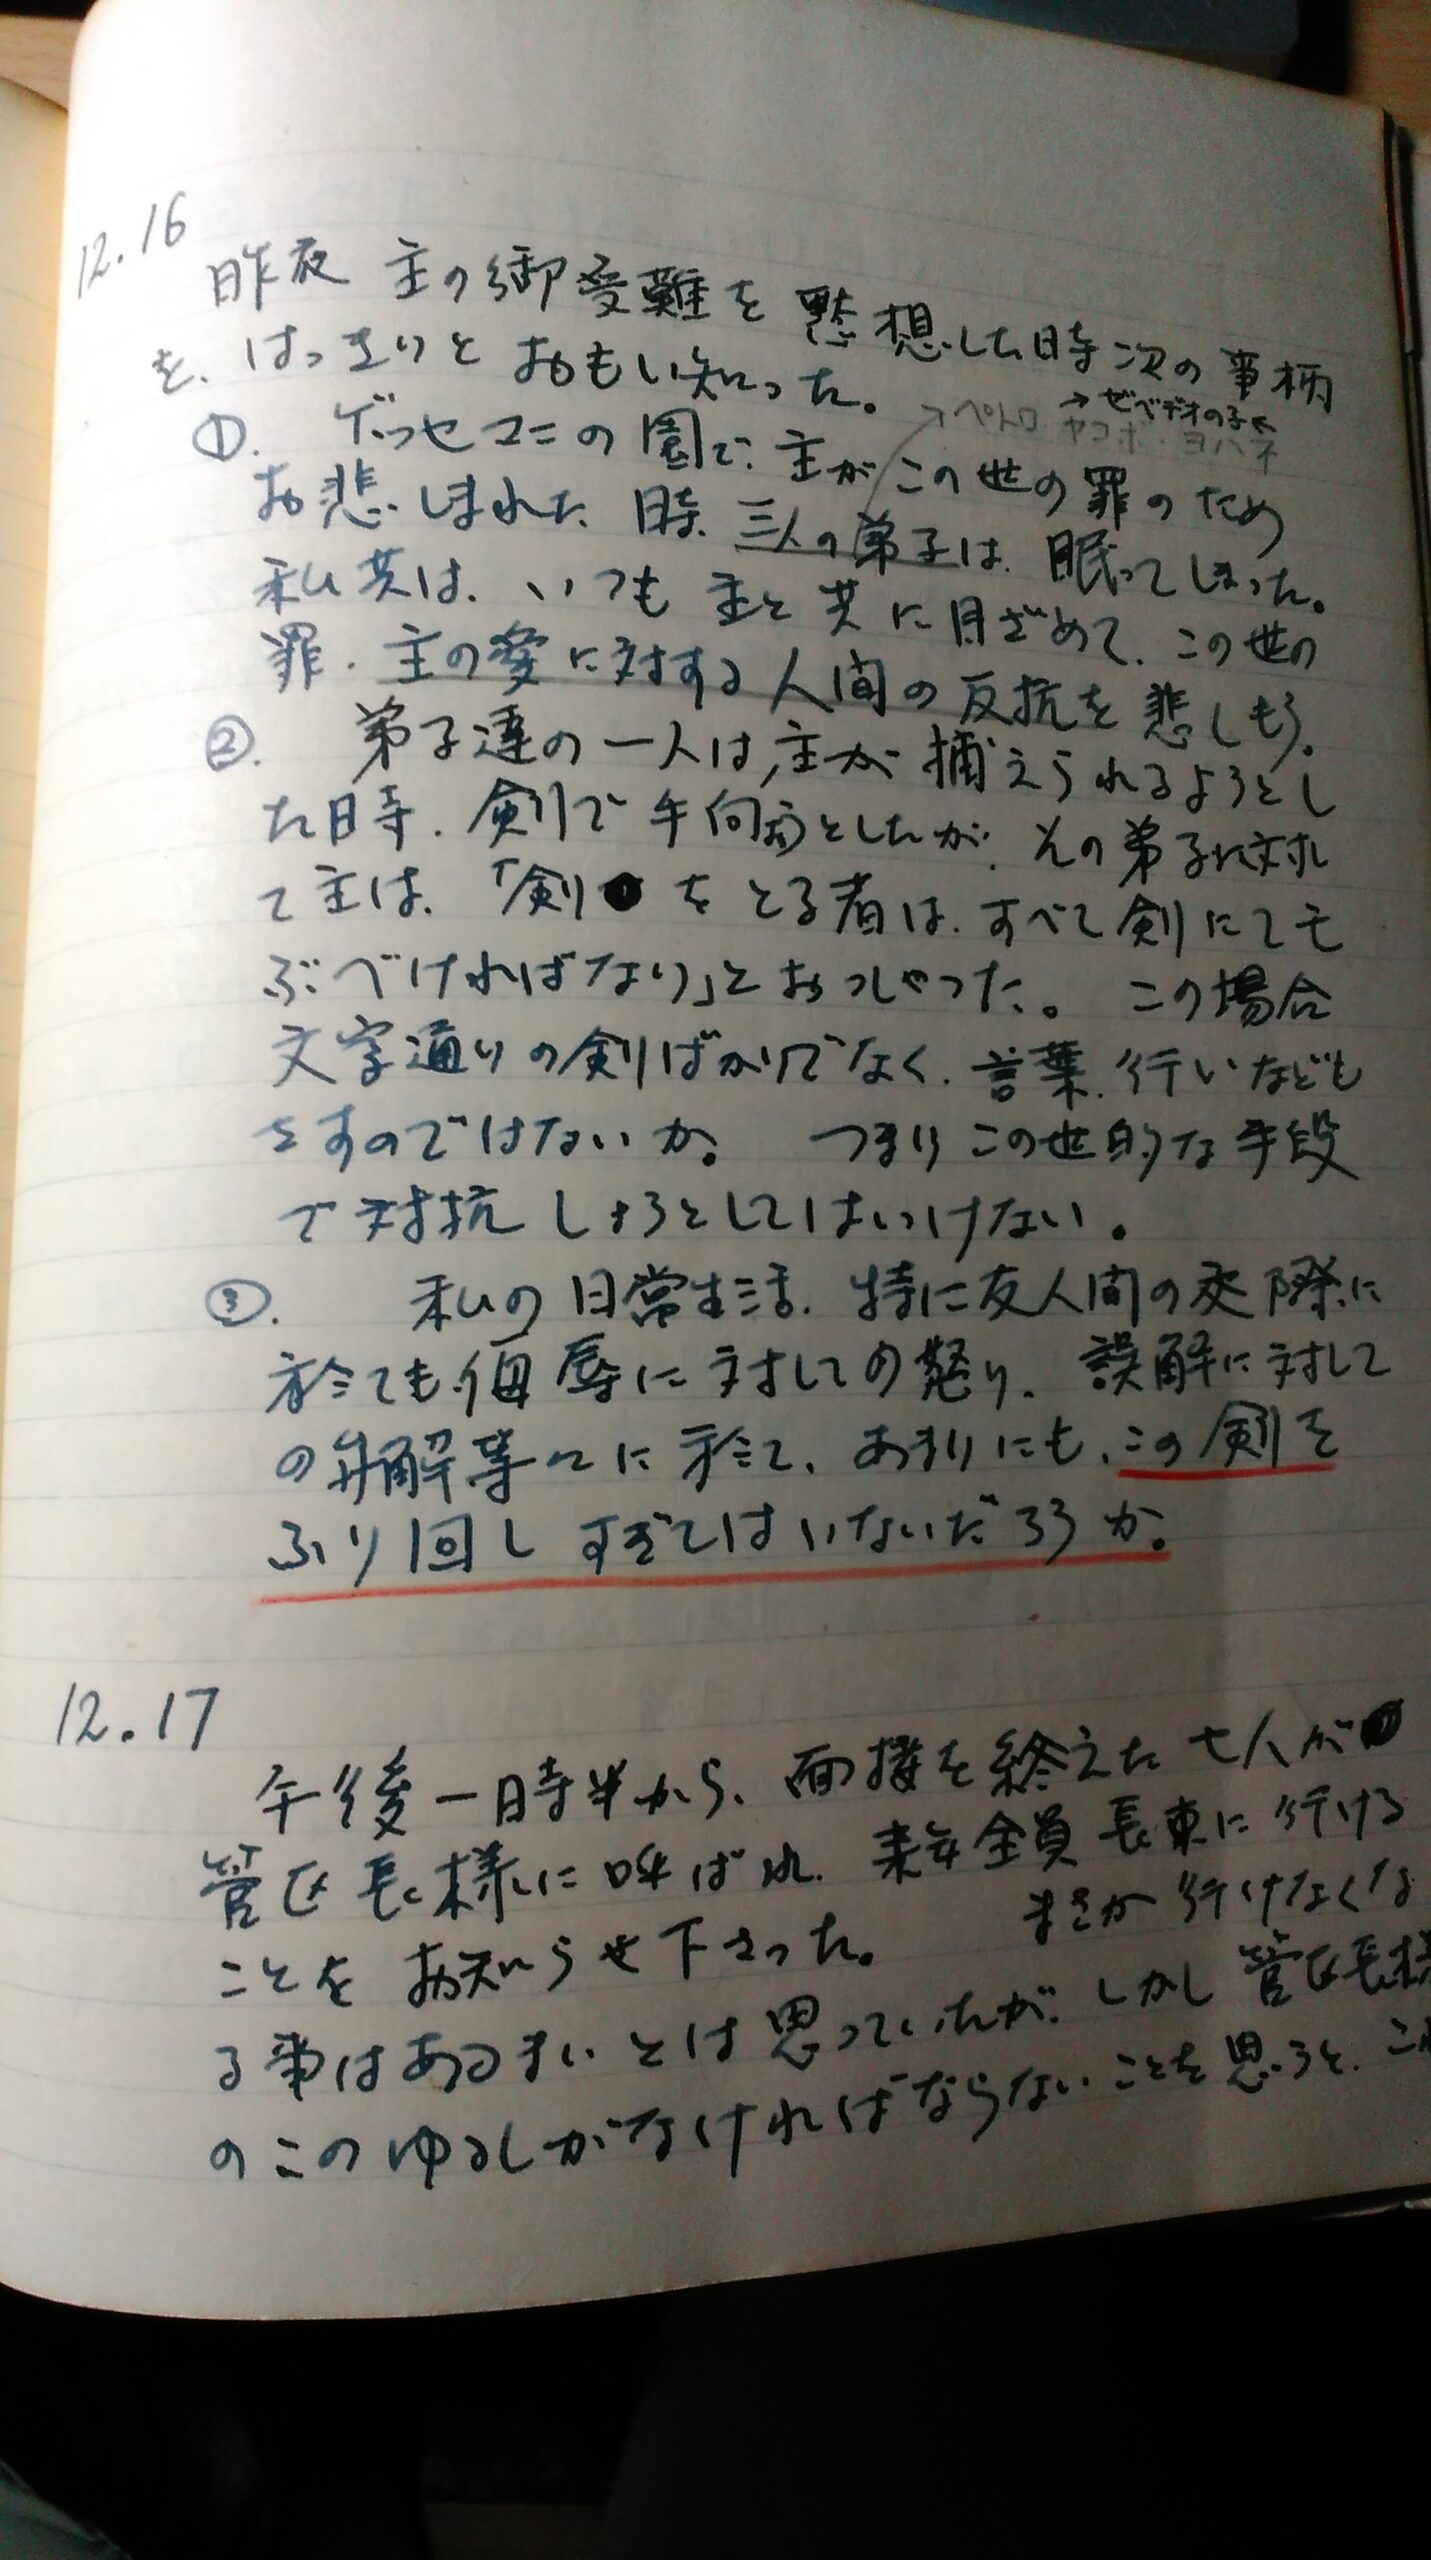 12.16
昨夜 主の御受難を黙想した時次の事柄
を、はっきりとおもい知った。
→ペトロ ヤコボ・ヨハネ
→ゼベデオの子
①. ゲッセマニの園で、主がこの世の罪のため
お悲しまれた時、三人の弟子は、眠ってしまった。
私共は、いつも主と共に目ざめて、この世の
罪、主の愛に対する人間の反抗を悲しもう。
②. 弟子達の一人は,主が捕えられるようとし
た時、剣で手向おうとしたが、その弟子に対し
て主は、「剣をとる者は、すべて剣にてモ
ぶべければなり」とおっしゃった。 この場合
文字通りの剣ばかりでなく、言葉、行いなども
さすのではないか。 つまりこの世的な手段
で対抗しようとしてはいけない。
③. 私の日常生活、特に友人間の交際に
於ても侮辱に対しての怒り、誤解に対して
の弁解等々に於て、あまりにも、この剣を
ふり回しすぎてはいないだろうか。
12.17
午後一時半から、面接を終えた七人が
管区長様に呼ばれ、来年全員長束に行ける
ことをお知らせ下さった。 まさか行けなくな
る事はあるまいとは思っていたが、しかし管区長様
のこのゆるしがなければならないことを思うと、これ